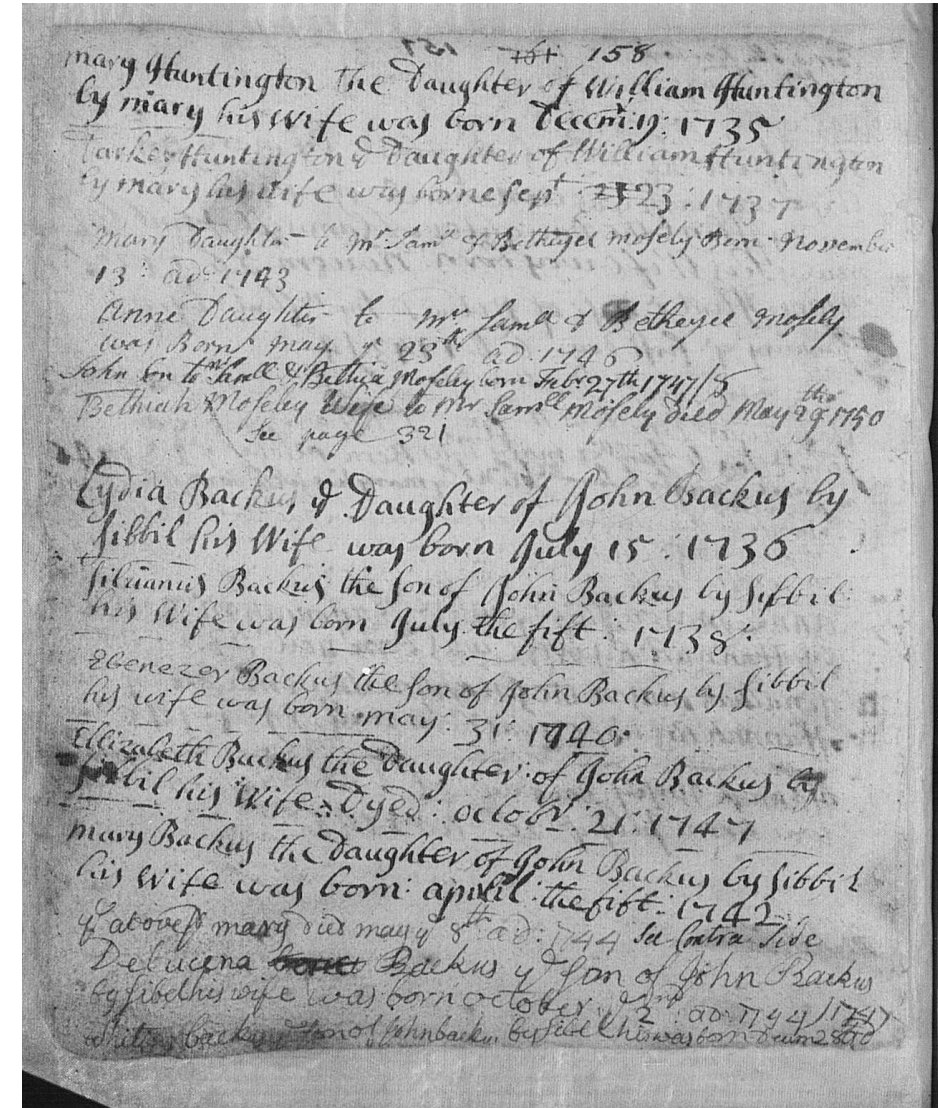 158
mary Huntington The Daughter of William Huntington
by mary his Wife was born Decem: 19: 1735
Huntington ye Daughter of William Huntington
by mary his wife was borne Sept 23 : 1737
Mary Daughter to Mr Samll & Bethyel mosely Born November
13: ad: 1743
Anne Daughter to Mr Samll & Betheyel Mosely
was Born May ye 23th ad. 1746
John Son to Mr Samll & Bethia Moseley born Febr 27th 1747/8
Bethiah Moseley Wife to Mr Samll Mosely died May 29th 1750
See page 321
Lydia Backus ye Daughter of John Backus by
Sibbil his Wife was born July 15 : 1736
Silvanus Backus the Son of John Backus by Sibbil
his Wife was born July the fift : 1738
Ebenezer Backus the Son of John Backus by Sibbil
his wife was born may: 31: 1740
Ellizabeth Backus the Daughter of John Backus by
Sibbil his Wife Dyed: octobr: 21: 1747
mary Backus the Daughter of John Backus by Sibbil
his Wife was born: april: the fift: 1742
ye above sd mary died may ye 8th ad: 1744 See Contra Side
Delucena Backus ye Son of John Backus
by Sibel his wife was born october ye 2nd ad 1744
backus ye son of John backus by Sibel his was born